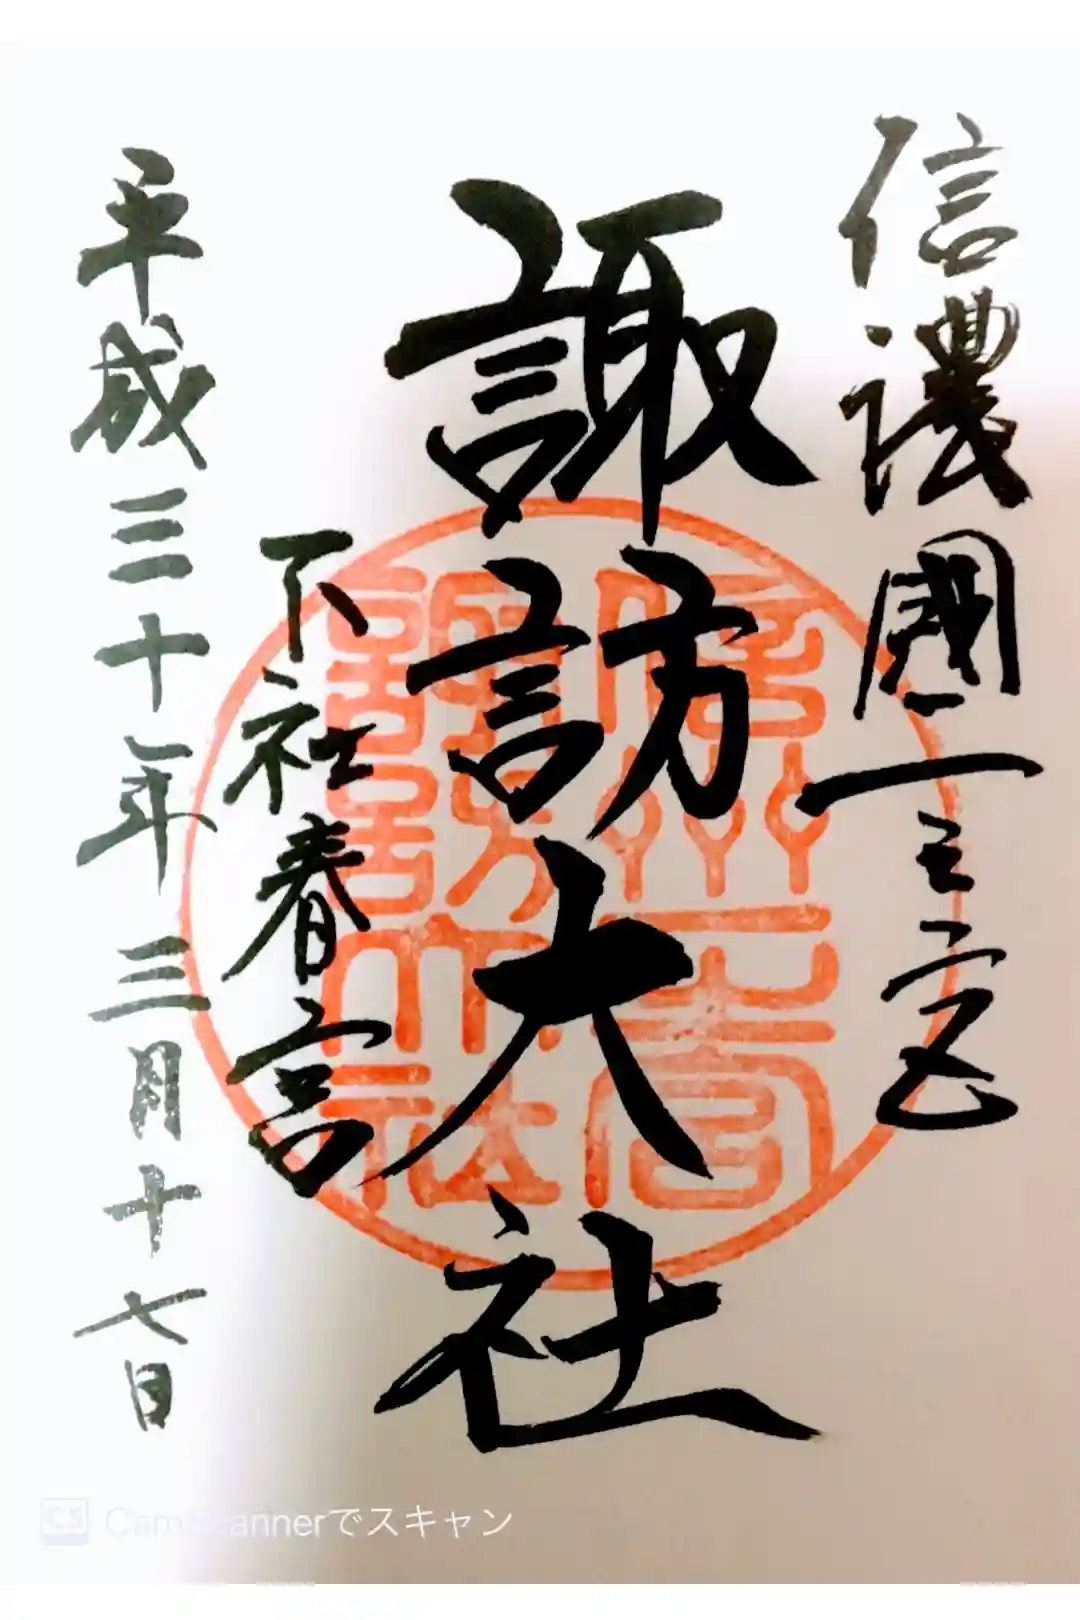 信濃國一之宮
諏訪大社
下社春宮
平成三十年三月十七日
信州一之宮
諏訪大社
CS CamScannerでスキャン